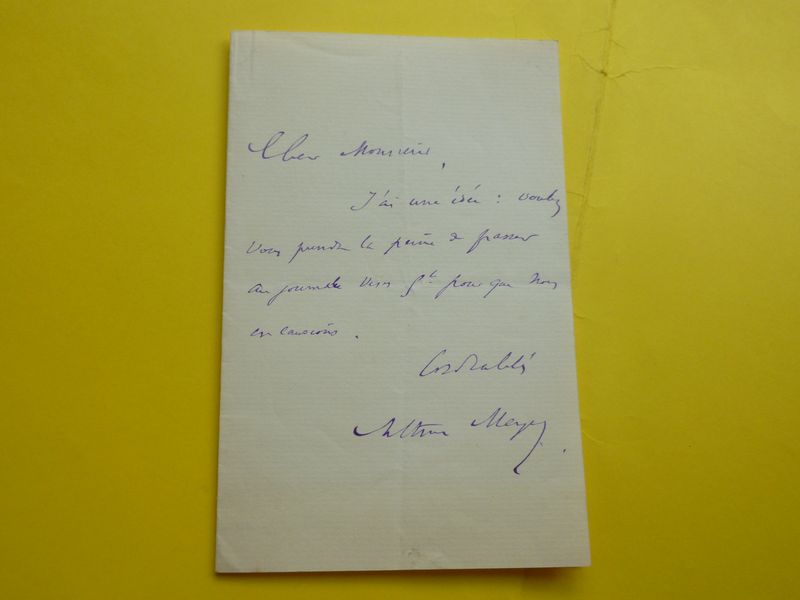 Cher Monsieur,
J'ai une idée : voulez
vous prendre la peine de passer
au journal vers 5h pour que nous
en causions.
Cordialités
Arthur Meyer.